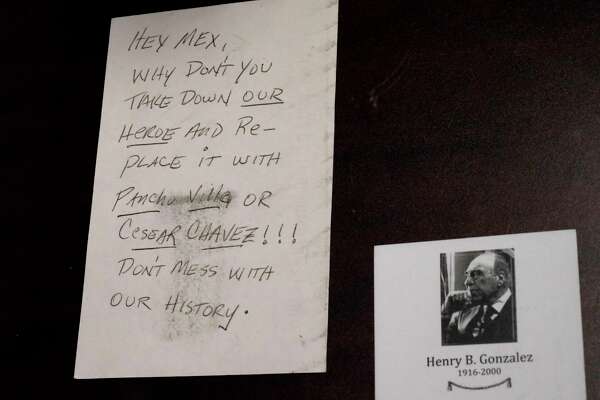 HEY MEX,
WHY DON'T YOU
TAKE DOWN OUR
HEROE AND RE-
PLACE iT WITH
PANCHO VILLA OR
CESEAR CHAVEZ!!!
DON'T MESS WITH
OUR HISTORY.
Henry B. Gonzalez
1916-2000